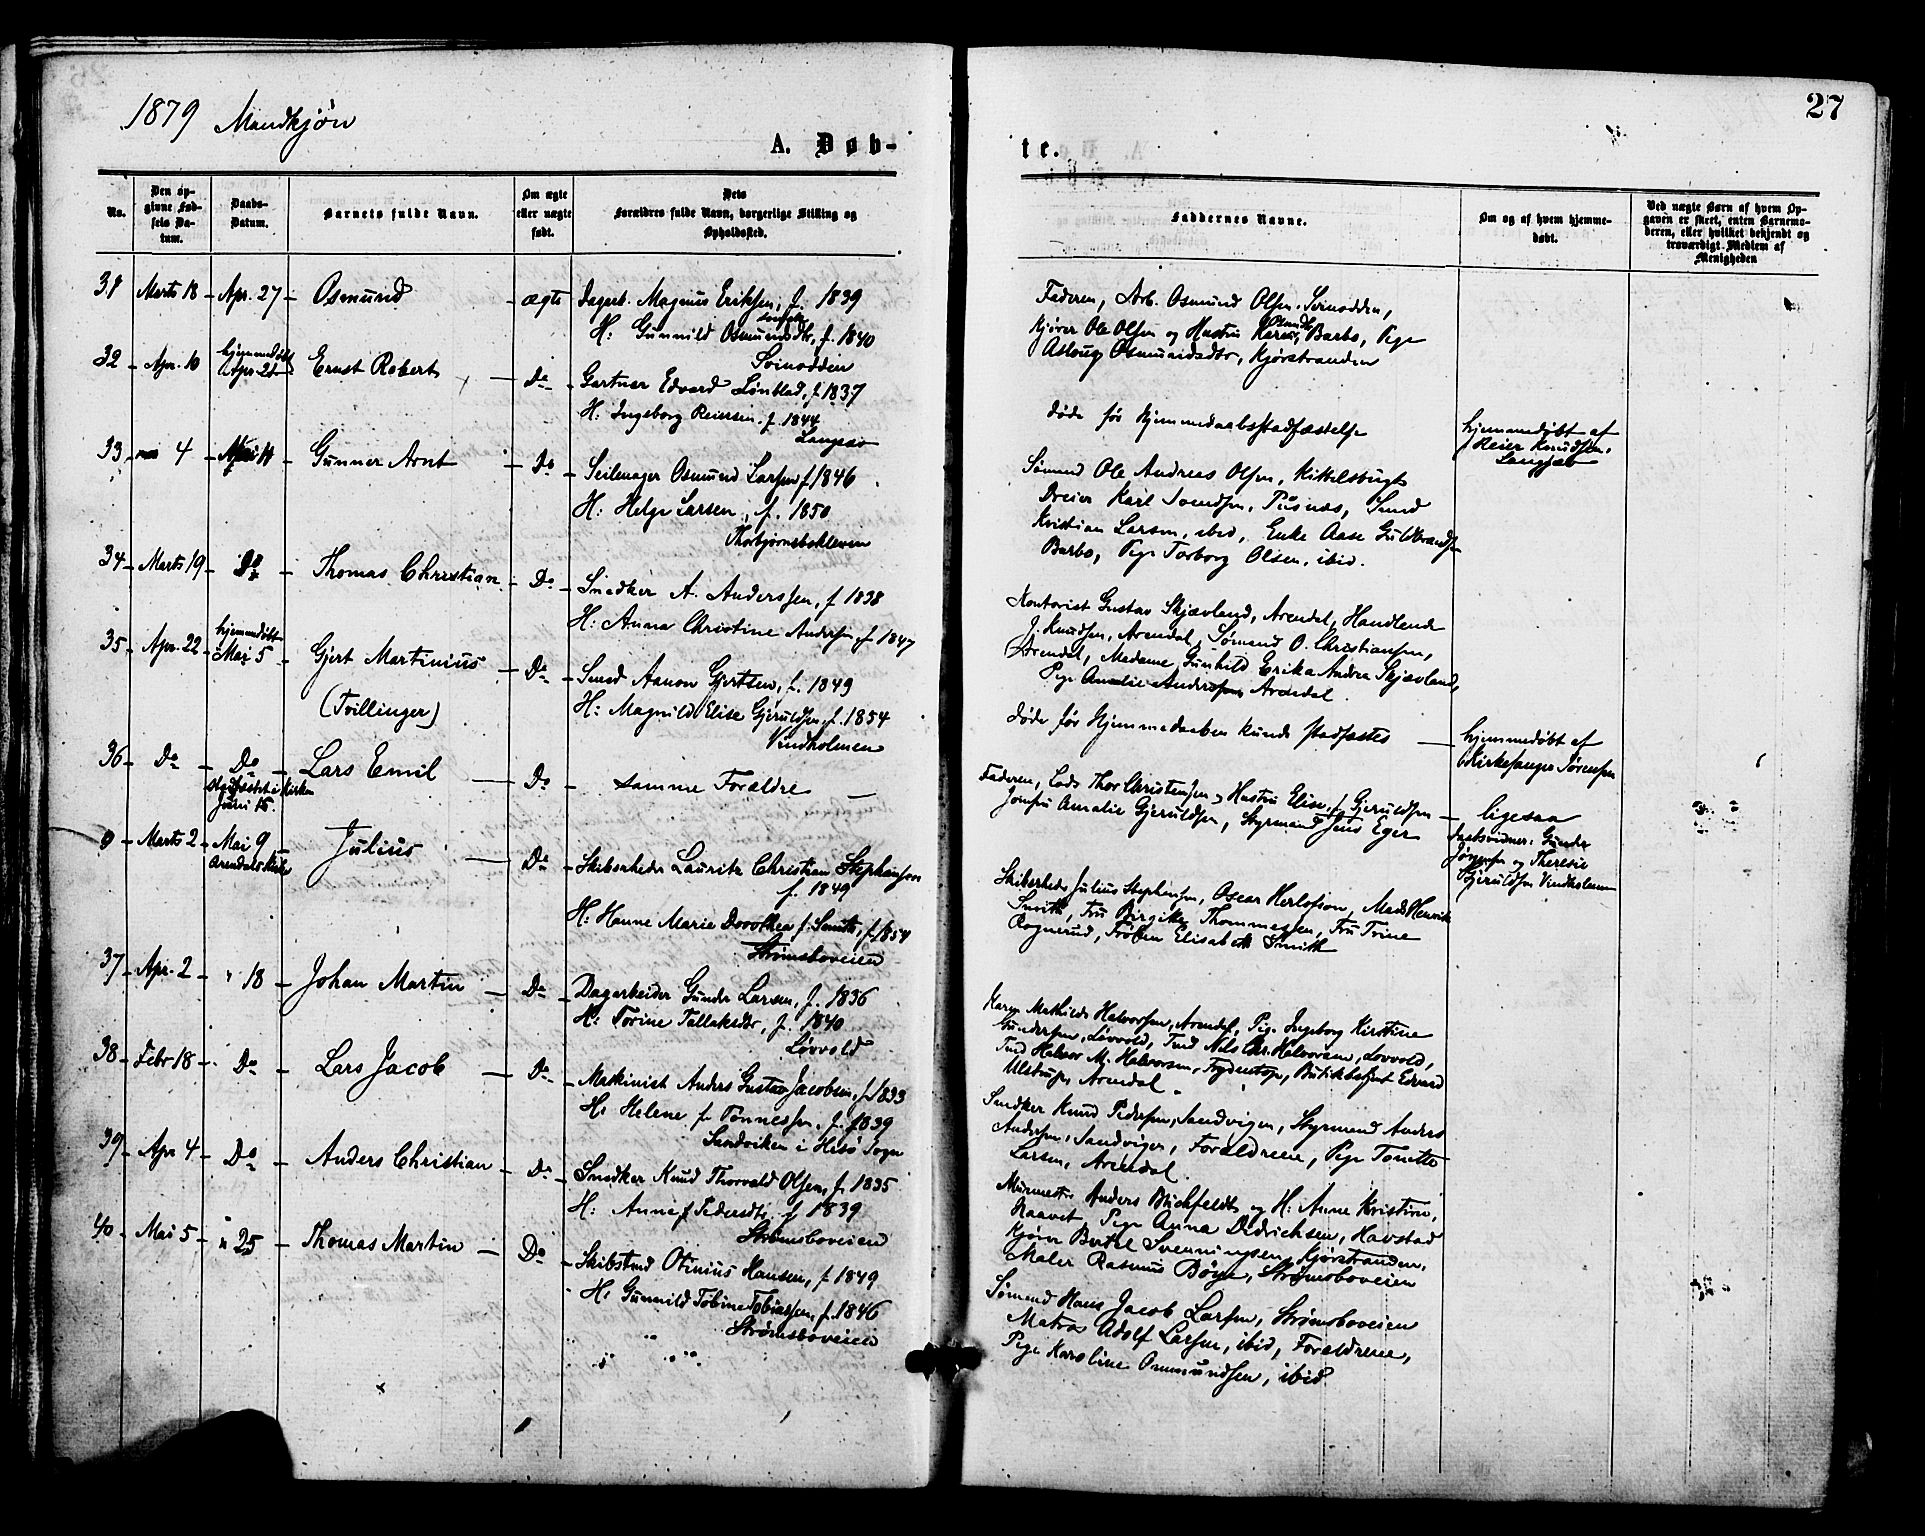 1879 Mandkjøn
27
A. Døb-
te.
No.
Den op-
givne Fød-
sels Da-
tum.
Daabs-
Datum.
Barnets fulde Navn.
Om ægte
eller uægte
født.
Dets
Forældres fulde Navn, borgerlige Stilling og
Opholdssted.
Faddernes Navne.
Om og af hvem hjemme-
døbt.
Ved uægte Børn af hvem Op-
gaven er skeet, enten Barnemo-
deren, eller hvilket bekjendt og
troværdigt Medlem af
Menigheden
31 Marts 18 Apr. 27 Osmund ægte Dagarb. Magnus Eriksen, f. 1839
H: Gunnild Osmundsdtr, f. 1840
Svinodden
Faderen, Arb. Osmund Olsen, Svinodden,
Kjører Ole Olsen og Hustru Karen, Barbo, Pige
Asloug Osmundsdtr, Kjørstranden
32 Apr. 10 hjemmedøbt
Apr. 21 Ernst Robert Do Gartner Edvard Lönblad, f. 1837
H: Ingeborg Reiersen f. 1844
Langsæv
Døde før Hjemmedaabsstadfæstelse
hjemmedøbt af
Reier Knudsen,
Langsæv
33 4 Mai 11 Gunner Arnt Do Seilmager Osmund Larsen f. 1846
H: Helge Larsen, f. 1850
Thorbjørnsbokleven
Sømand Ole Andreas Olsen, Kittelsbugt
Dreier Karl Svendsen, Pusnæs, Smed
Kristian Larsen, ibid, Enke Aase Guldbrandsen
Barbo, Pige Torborg Olsen, ibid.
34 Marts 19 Do Thomas Christian Do Snedker A. Anderssen, f 1838
H: Anna Christine Andersen, f 1847
Kontorist Gustav Skjævland, Arendal, Handlende
J. Knudsen, Arendal, Sømand O. Christiansen,
Arendal, Madame Gunhild Erika Andrea Skjævland,
Pige Amalie Andersen Arendal
35 Apr. 22 hjemmedøbt
Mai 5 Gjert Martinius
(Tvillinger) Do Smed Aanon Gjertsen, f. 1849
H: Magnild Elise Gjeruldsen, f. 1854
Vindholmen
Døde før Hjemmedaaben kunde stadfæstes
hjemmedøbt af
Kirkesanger Sørensen
36 Do Do
Stadfæstet i Kirken
Juni 15. Lars Emil Do samme Forældre
Faderen, Lods Thor Christensen og Hustru Elise f. Gjeruldsen
Jomfru Amalie Gjeruldsen, Styrmand Jens Eger
ligesaa
Daabsvidner: Gunder
Jørgensen og Theresie
Gjeruldsen Vindholmen
0 Marts 2 Mai 9
Arendals Kirke Julius Do Skibsrheder Lauritz Christian Stephansen
f. 1849
H: Hanne Marie Dorothea f. Smith, f. 1854
Strømsboveien
Skibsrheder Julius Stephansen, Oscar Herlofson, Mads Henrik
Smith, Fru Birgitte Thommesen, Fru Trine
Rognerud, Frøken Elisabeth Smith
37 Apr. 2 " 18 Johan Martin Do Dagarbeider Gunder Larsen, f. 1836
H: Torine Tallaksdtr, f. 1840
Løvvold
Karen Mathilde Halvorsen, Arendal, Pige Ingeborg Kirstine
Gundersen, Løvvold, Tmd Nils Chr. Halvorsen, Løvvold,
Tmd Halvor M. Halvorsen, Frydentop, Butikbetjent Edvard
Ulstrup, Arendal.
38 Febr 18 Do Lars Jacob Do Maskinist Anders Gustav Jacobsen, f. 1833
H: Helene f. Tönnessen, f. 1839
Sandviken i Hisø Sogn
Snedker Knud Pedersen, Sandvigen, Styrmand Anders
Andersen, Sandvigen, Forældrene, Pige Tonette
Larsen, Arendal.
39 Apr 4 Do Anders Christian Do Snedker Knud Thorvald Olsen, f. 1835
H: Anne f Pedersdtr, f 1839
Strømsboveien
Murmestr Anders Buchfeldt og H: Anne Kristine,
Raavet, Pige Anna Didrichsen, Havstad
Kjører Bertel Svenningsen, Kjørstranden,
Maler Rasmus Böye, Strømsboveien
40 Mai 5 " 25 Thomas Martin Do Skibstmd Otinius Hansen, f. 1849
H: Gunnild Tobine Tobiassen, f. 1846
Strømsboveien
Sømand Hans Jacob Larsen, Strømsboveien
Matros Adolf Larsen, ibid, Forældrene,
Pige Karoline Osmundsen, ibid.